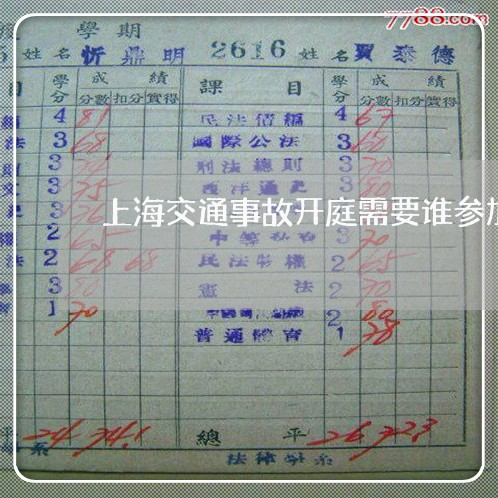 7788.com
學期
姓名 忻鼎明 2616 姓名 賈泰德
目 學分 成績 課目 學分 成績
分數 扣分 實得 分數 扣分 實得
4 81 民法債編 4 67
法 3 68 國際公法 3 60
3 刑法總則 3 70
文 3 75 西洋通史 3 80
上海交通事故开庭需要谁参加
2 65 中等 3 70
法 2 68 68 民法物權 2 65
3 80 憲法 2 70
育 1 70 2 80
普通體育 1 78
平 24 74.1 總平 26 72.3
系 法律學系